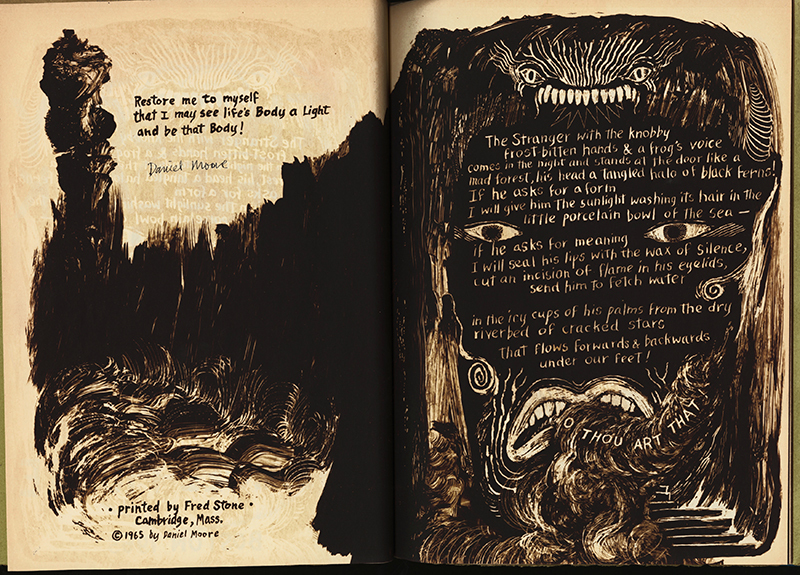 Restore me to myself
that I may see life's Body a Light
and be that Body!
Daniel Moore
• printed by Fred Stone •
Cambridge, Mass.
© 1965 by Daniel Moore
The Stranger with the knobby
frost-bitten hands & a frog's voice
comes in the night and stands at the door like a
mad forest, his head a tangled halo of black ferns!
If he asks for a form
I will give him the sunlight washing its hair in the
little porcelain bowl of the sea —
If he asks for meaning
I will seal his lips with the wax of silence,
cut an incision of flame in his eyelids,
send him to fetch water
in the icy cups of his palms from the dry
riverbed of cracked stars
That flows forwards & backwards
under our feet!
O THOU ART THAT